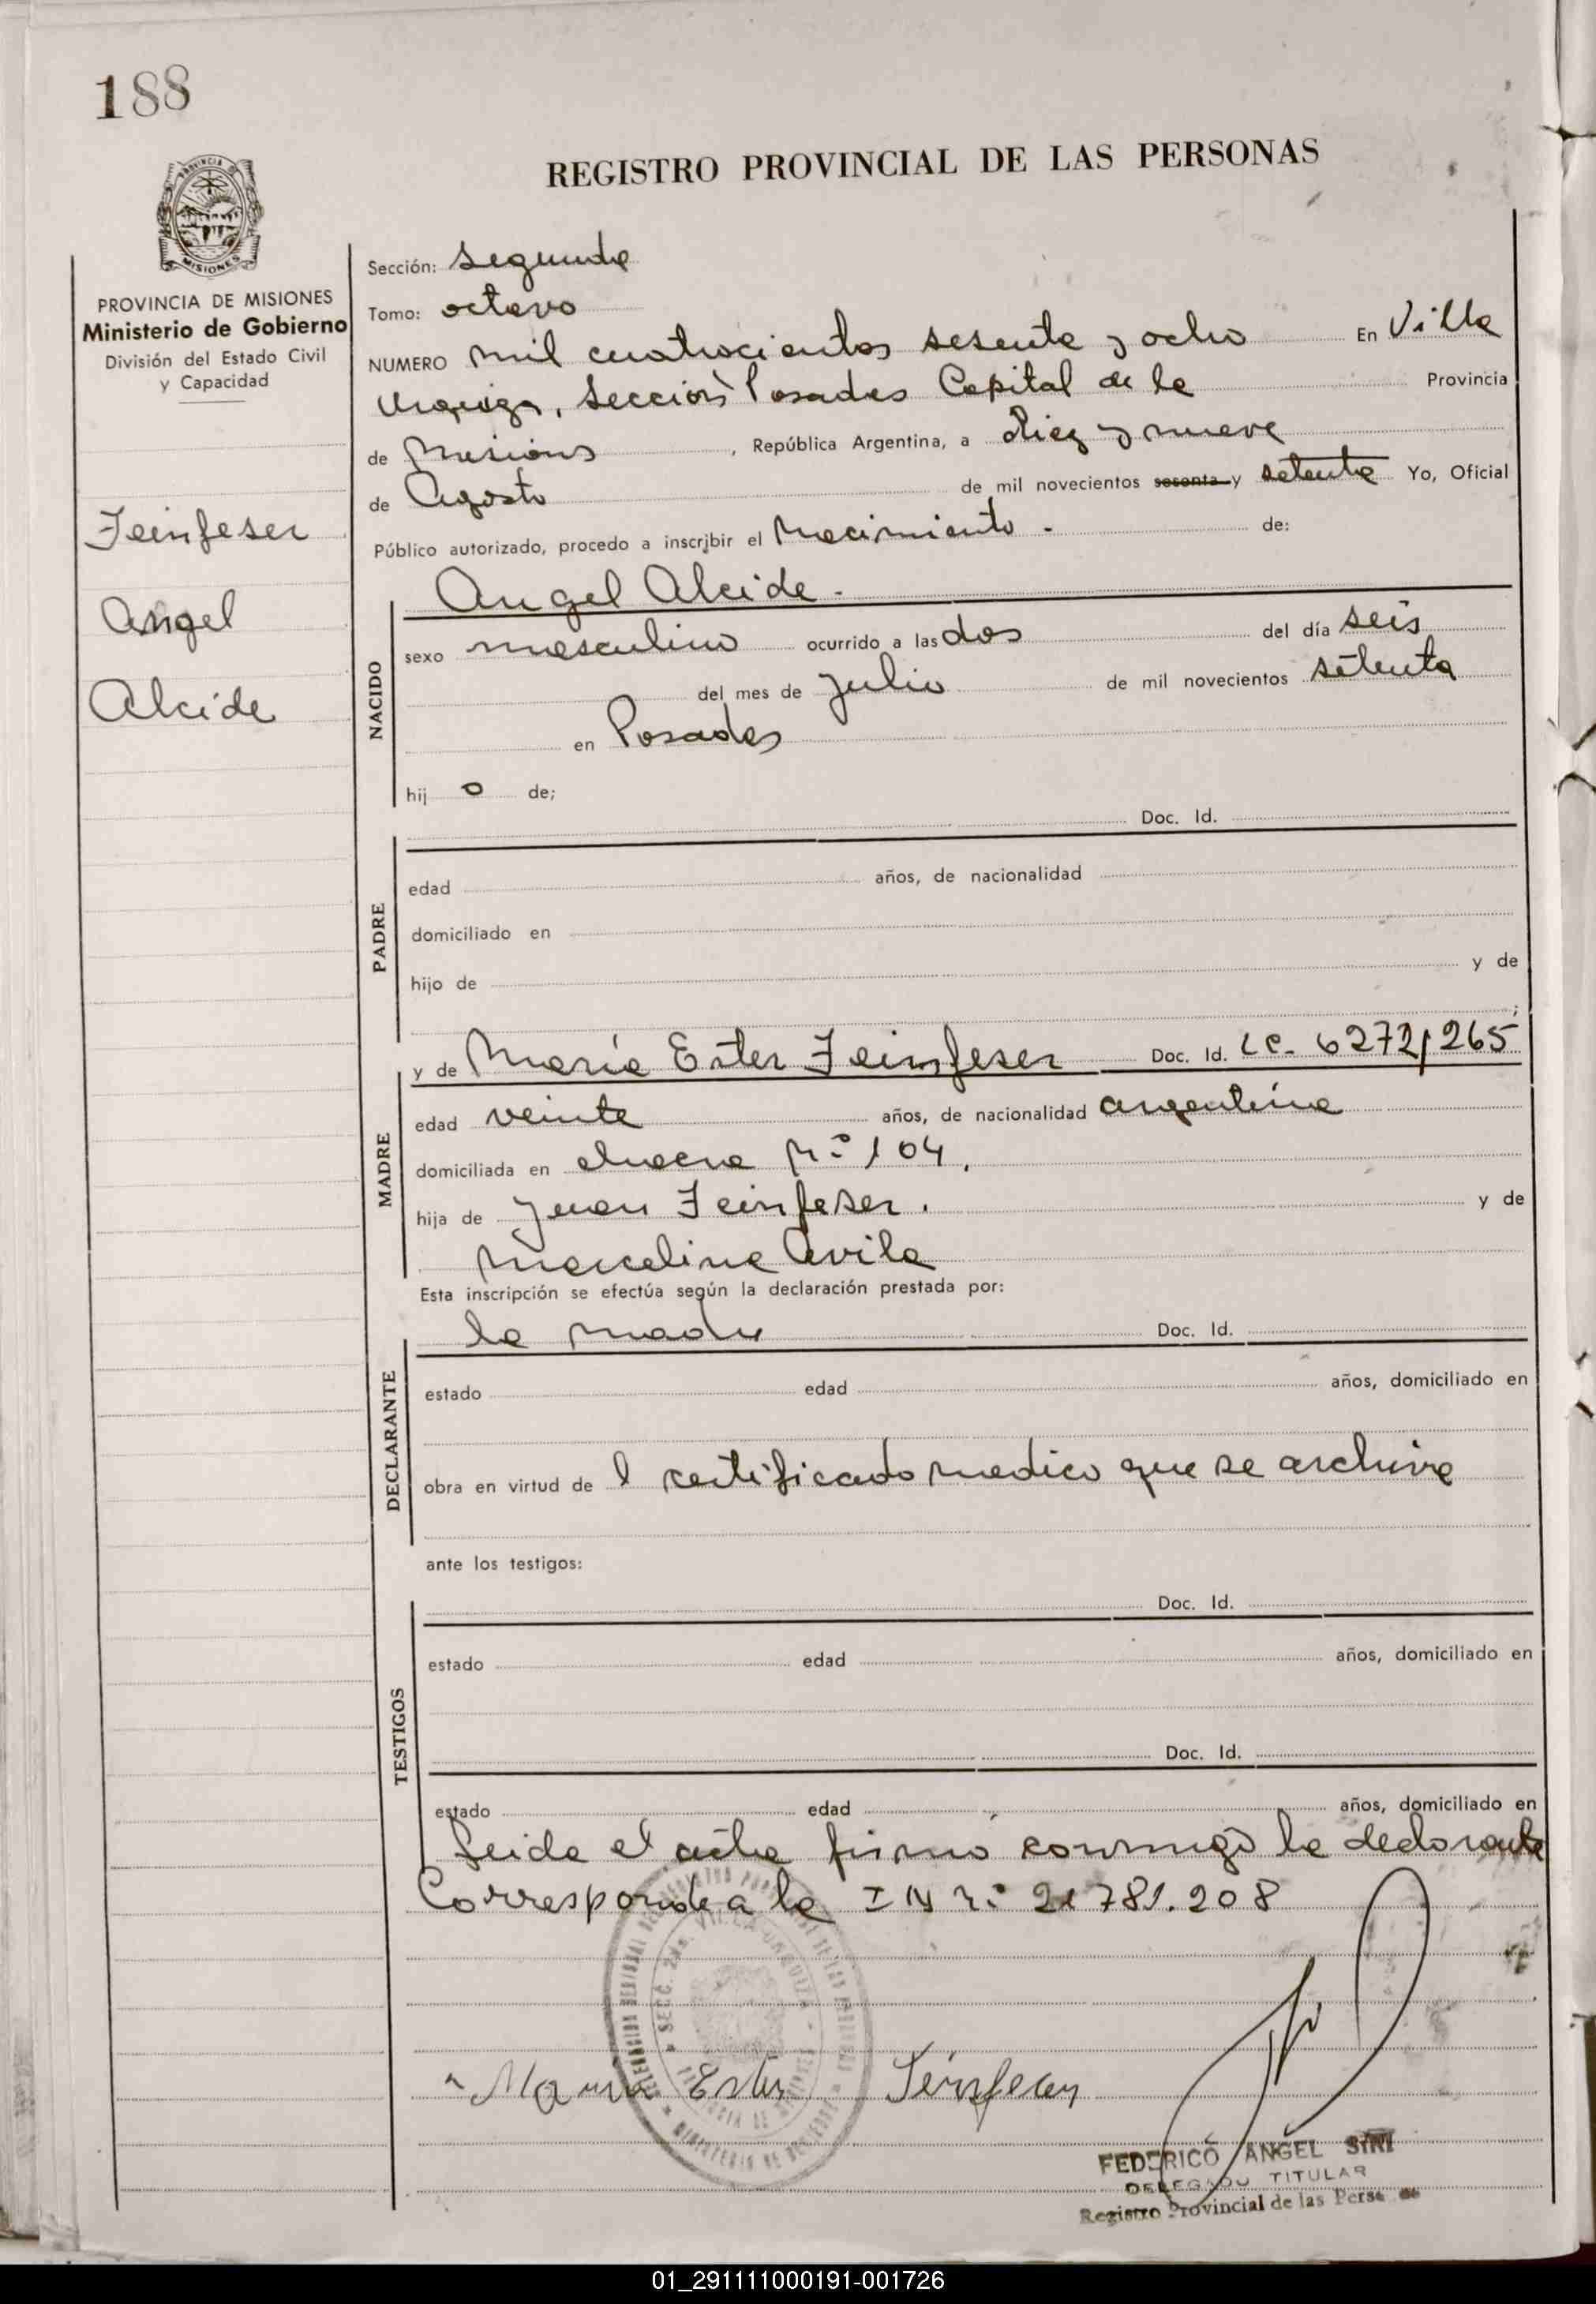 188
REGISTRO PROVINCIAL DE LAS PERSONAS
PROVINCIA
MISIONES
PROVINCIA DE MISIONES
Ministerio de Gobierno
División del Estado Civil
y Capacidad
Feinfeser
Angel
Alcide
Sección: segunda
Tomo: octavo
NUMERO mil cuatrocientos sesenta y ocho En Villa
Urquiza, Sección Posadas Capital de la Provincia
de Misiones, República Argentina, a diez y nueve
de Agosto de mil novecientos sesenta y setenta Yo, Oficial
Público autorizado, procedo a inscribir el Nacimiento - de:
Angel Alcide -
NACIDO
sexo masculino ocurrido a las dos del día seis
del mes de Julio de mil novecientos setenta
en Posadas
hij o de;
Doc. Id.
PADRE
edad años, de nacionalidad
domiciliado en
hijo de y de
y de María Ester Feinfeser Doc. Id. LC- 6272,265
MADRE
edad veinte años, de nacionalidad argentina
domiciliada en chacra Nº 104,
hija de Juan Feinfeser. y de
Marcelina Avila
Esta inscripción se efectúa según la declaración prestada por:
la madre Doc. Id.
DECLARANTE
estado edad años, domiciliado en
obra en virtud de l certificado medico que se archiva
ante los testigos:
Doc. Id.
TESTIGOS
estado edad años, domiciliado en
Doc. Id.
estado edad años, domiciliado en
Leida el acta firmó conmigo la declarante
Corresponde a la IN nº 21 781.208
Maria Ester
FEDERICO ANGEL SIRI
DELEGADO TITULAR
Registro Provincial de las Personas
01_291111000191-001726